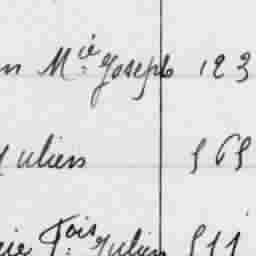 n M.ie Joseph 123
Julien 565
ie F.ois Julien 511